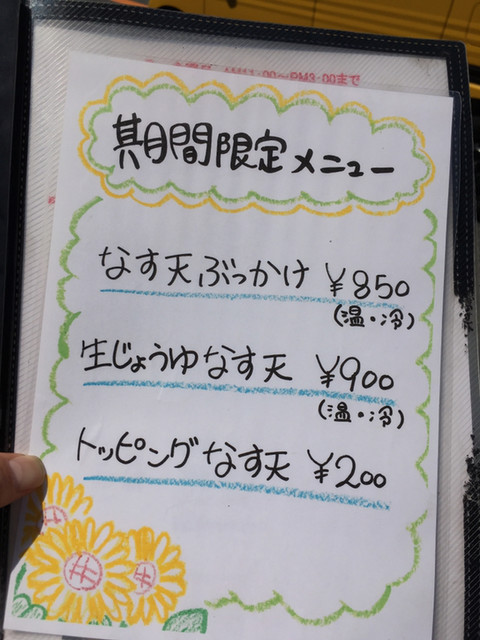 期間限定メニュー
なす天ぶっかけ ¥850
(温・冷)
生じょうゆなす天 ¥900
(温・冷)
トッピングなす天 ¥200